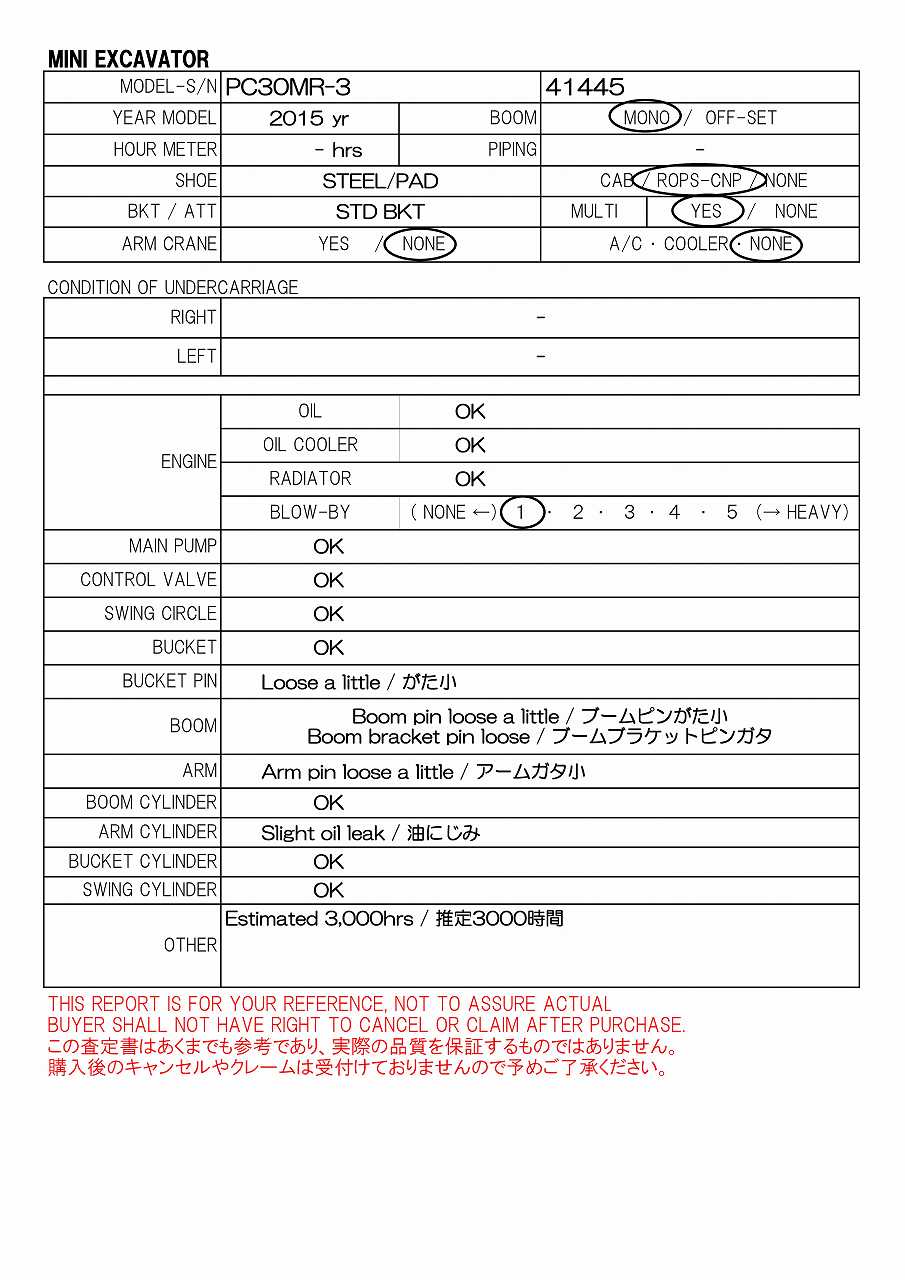 MINI EXCAVATOR
MODEL-S/N PC30MR-3 41445
YEAR MODEL 2015 yr BOOM MONO / OFF-SET
HOUR METER - hrs PIPING -
SHOE STEEL/PAD CAB / ROPS-CNP / NONE
BKT / ATT STD BKT MULTI YES / NONE
ARM CRANE YES / NONE A/C・COOLER・NONE
CONDITION OF UNDERCARRIAGE
RIGHT -
LEFT -
ENGINE
OIL OK
OIL COOLER OK
RADIATOR OK
BLOW-BY ( NONE ←) 1 ・ 2 ・ 3 ・ 4 ・ 5 (→ HEAVY)
MAIN PUMP OK
CONTROL VALVE OK
SWING CIRCLE OK
BUCKET OK
BUCKET PIN Loose a little / がた小
BOOM Boom pin loose a little / ブームピンがた小
Boom bracket pin loose / ブームブラケットピンガタ
ARM Arm pin loose a little / アームガタ小
BOOM CYLINDER OK
ARM CYLINDER Slight oil leak / 油にじみ
BUCKET CYLINDER OK
SWING CYLINDER OK
OTHER Estimated 3,000hrs / 推定3000時間
THIS REPORT IS FOR YOUR REFERENCE, NOT TO ASSURE ACTUAL
BUYER SHALL NOT HAVE RIGHT TO CANCEL OR CLAIM AFTER PURCHASE.
この査定書はあくまでも参考であり、実際の品質を保証するものではありません。
購入後のキャンセルやクレームは受付けておりませんので予めご了承ください。